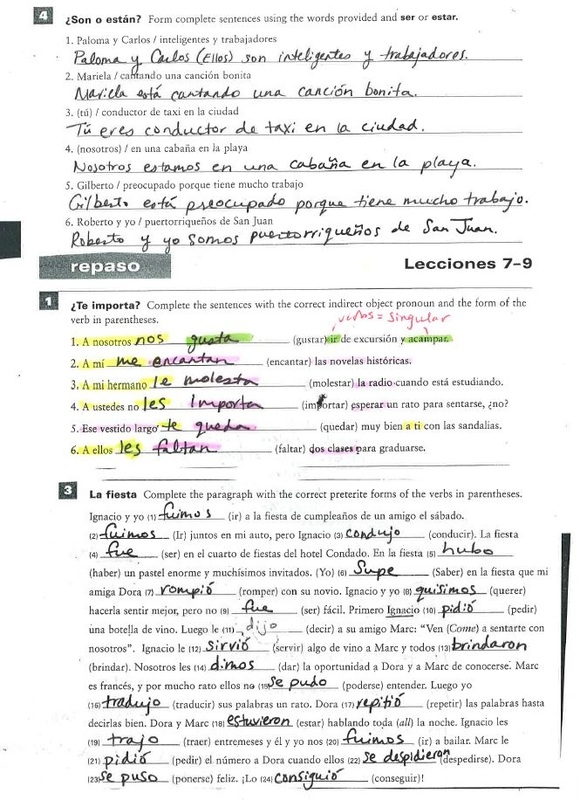 4 ¿Son o están? Form complete sentences using the words provided and ser or estar.
1. Paloma y Carlos / inteligentes y trabajadores
Paloma y Carlos (Ellos) son inteligentes y trabajadores.
2. Mariela / cantando una canción bonita
Mariela está cantando una canción bonita.
3. (tú) / conductor de taxi en la ciudad
Tú eres conductor de taxi en la ciudad.
4. (nosotros) / en una cabaña en la playa
Nosotros estamos en una cabaña en la playa.
5. Gilberto / preocupado porque tiene mucho trabajo
Gilberto está preocupado porque tiene mucho trabajo.
6. Roberto y yo / puertorriqueños de San Juan
Roberto y yo somos puertorriqueños de San Juan.
repaso Lecciones 7–9
1 ¿Te importa? Complete the sentences with the correct indirect object pronoun and the form of the
verb in parentheses.
verbs = singular
1. A nosotros nos gusta (gustar) ir de excursión y acampar.
2. A mí me encantan (encantar) las novelas históricas.
3. A mi hermano le molesta (molestar) la radio cuando está estudiando.
4. A ustedes no les importa (importar) esperar un rato para sentarse, ¿no?
5. Ese vestido largo te queda (quedar) muy bien a ti con las sandalias.
6. A ellos les faltan (faltar) dos clases para graduarse.
3 La fiesta Complete the paragraph with the correct preterite forms of the verbs in parentheses.
Ignacio y yo (1) fuimos (ir) a la fiesta de cumpleaños de un amigo el sábado.
(2) fuimos (Ir) juntos en mi auto, pero Ignacio (3) condujo (conducir). La fiesta
(4) fue (ser) en el cuarto de fiestas del hotel Condado. En la fiesta (5) hubo
(haber) un pastel enorme y muchísimos invitados. (Yo) (6) Supe (Saber) en la fiesta que mi
amiga Dora (7) rompió (romper) con su novio. Ignacio y yo (8) quisimos (querer)
hacerla sentir mejor, pero no (9) fue (ser) fácil. Primero Ignacio (10) pidió (pedir)
una botella de vino. Luego le (11) dijo (decir) a su amigo Marc: "Ven (Come) a sentarte con
nosotros". Ignacio le (12) sirvió (servir) algo de vino a Marc y todos (13) brindaron
(brindar). Nosotros les (14) dimos (dar) la oportunidad a Dora y a Marc de conocerse. Marc
es francés, y por mucho rato ellos no (15) se pudo (poderse) entender. Luego yo
(16) tradujo (traducir) sus palabras un rato. Dora (17) repitió (repetir) las palabras hasta
decirlas bien. Dora y Marc (18) estuvieron (estar) hablando toda (all) la noche. Ignacio les
(19) trajo (traer) entremeses y él y yo nos (20) fuimos (ir) a bailar. Marc le
(21) pidió (pedir) el número a Dora cuando ellos (22) se despidieron (despedirse). Dora
(23) se puso (ponerse) feliz. ¡Lo (24) consiguió (conseguir)!